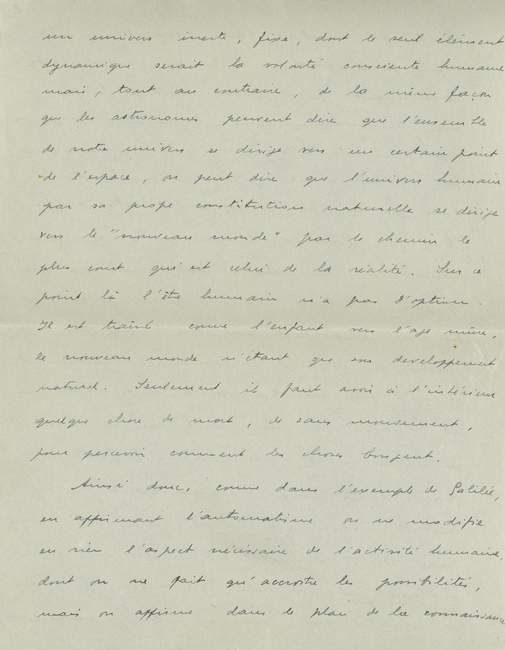 un univers inerte, fixe, dont le seul élément
dynamique serait la volonté consciente humaine
mais, tout au contraire, de la même façon
que les astronomes peuvent dire que l'ensemble
de notre univers se dirige vers un certain point
de l'espace, on peut dire que l'univers humain
par sa propre constitution naturelle se dirige
vers le "nouveau monde" par le chemin le
plus court qui est celui de la réalité. Sur ce
point là l'être humain n'a pas d'option.
Il est traîné comme l'enfant vers l'age mûre,
le nouveau monde n'étant que son developpement
naturel. Seulement il faut avoir à l'intérieur
quelque chose de mort, de sans mouvement,
pour percevoir comment les choses bougent.
Ainsi donc, comme dans l'exemple de Galilée,
en affirmant l'automatisme on ne modifie
en rien l'aspect nécessaire de l'activité humaine,
dont on ne fait qu'accroître les possibilités,
mais on affirme dans le plan de la connaissance